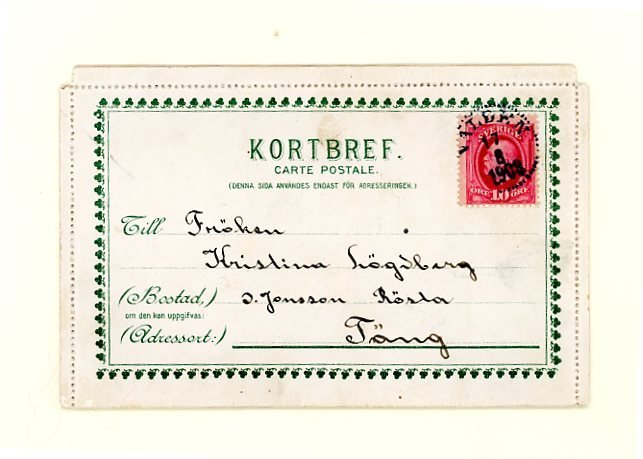 KORTBREF.
CARTE POSTALE.
(DENNA SIDA ANVÄNDES ENDAST FÖR ADRESSERINGEN.)
SVERIGE
17
8
1908
ÖRE 10 ÖRE
Till Fröken
Kristina Högdberg
(Bostad,) J. Jonsson Rösta
om den kan uppgifvas:
(Adressort:) Täng